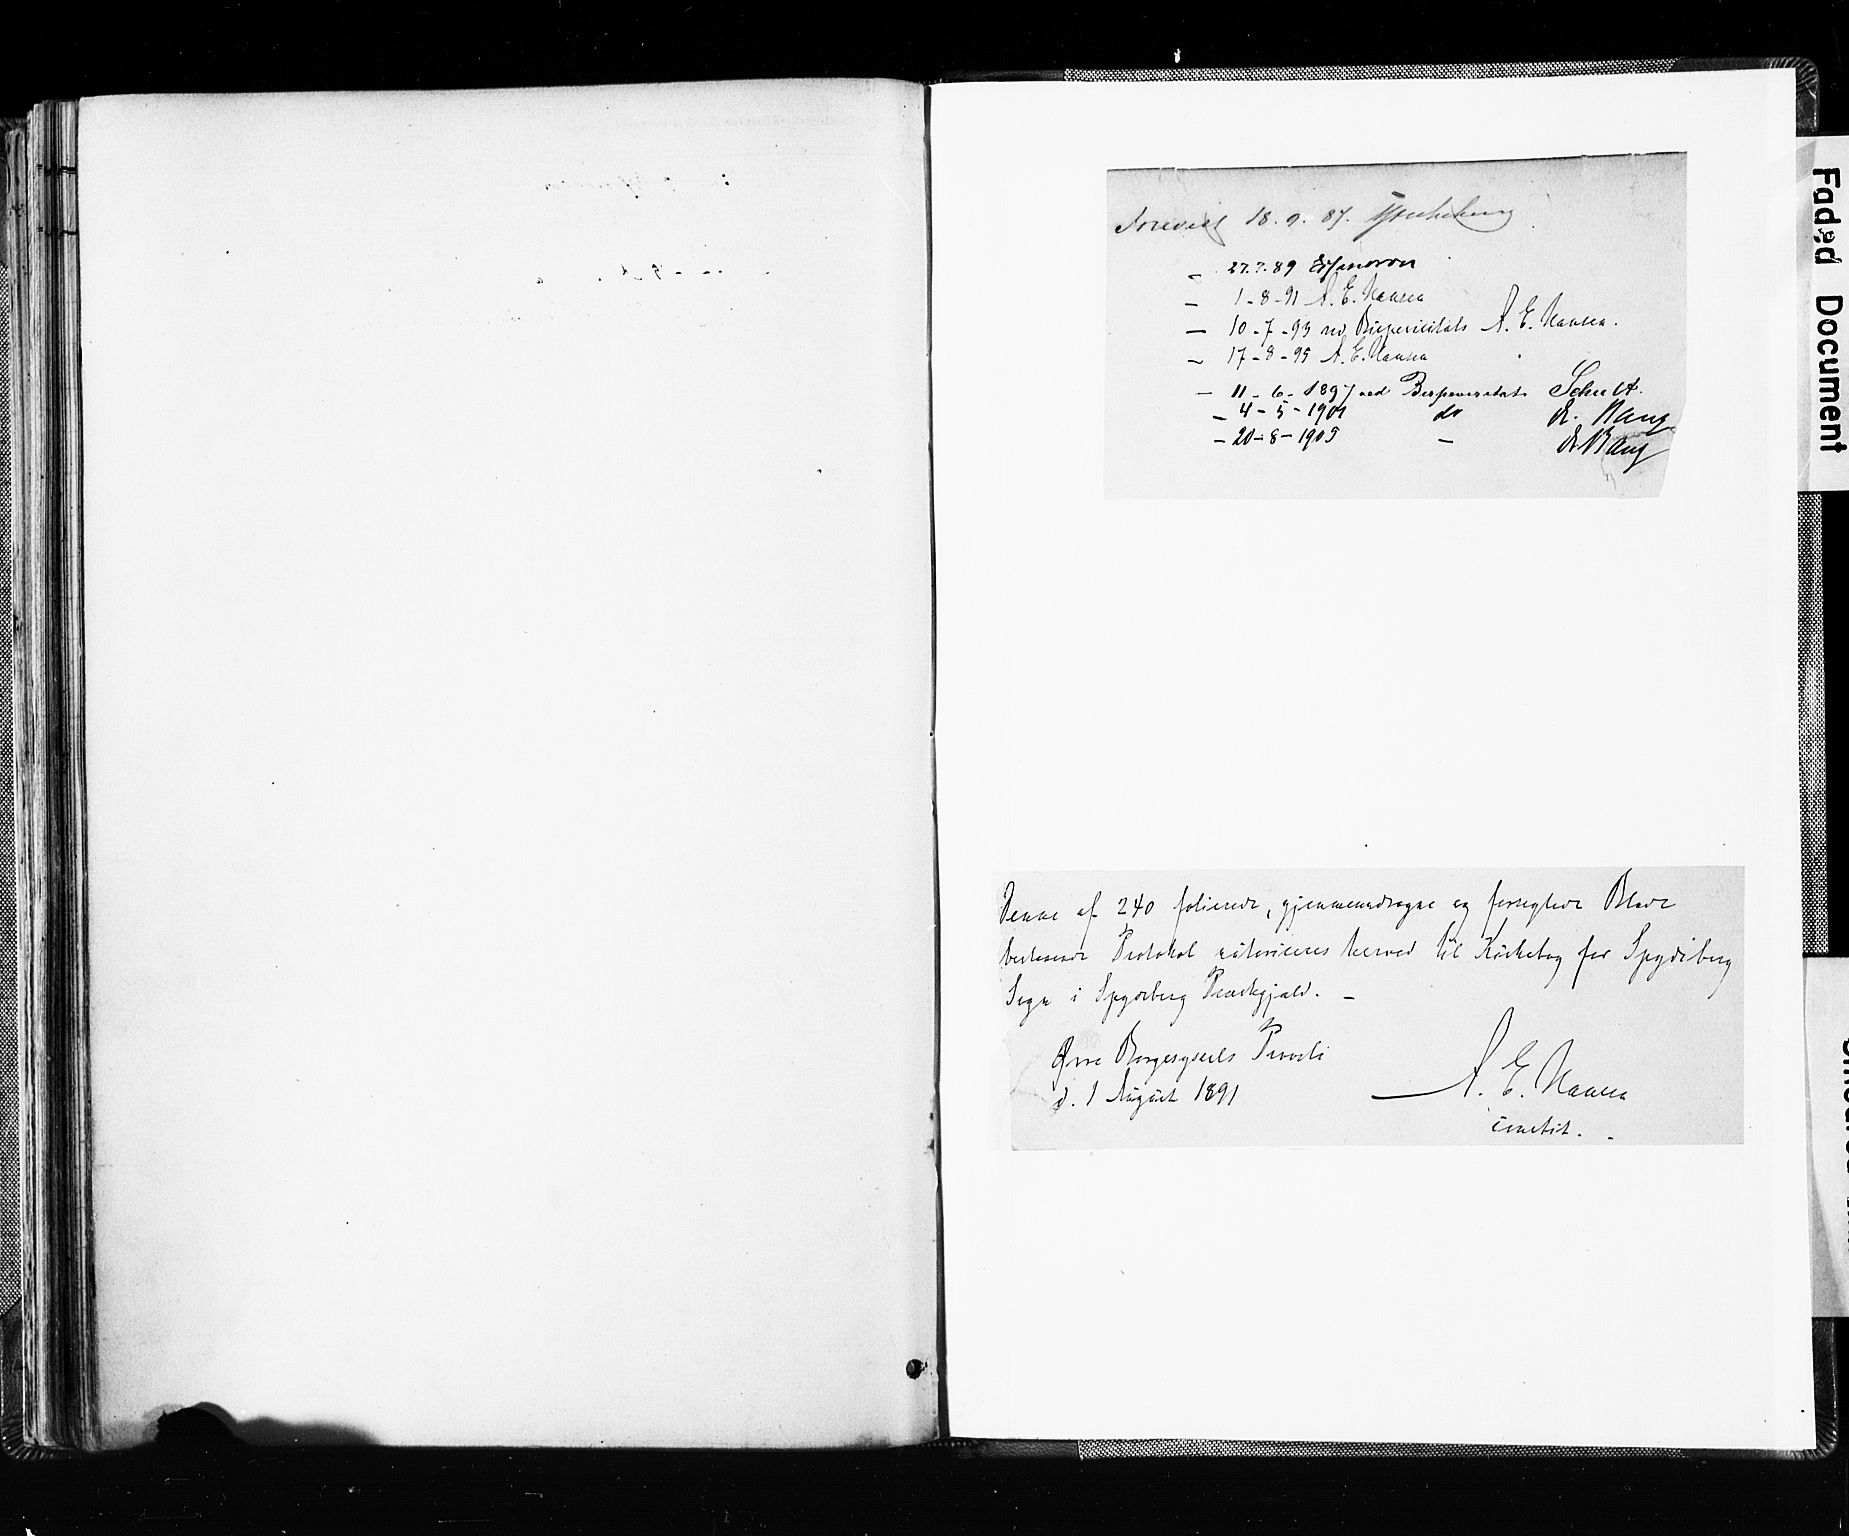 Forevist 18.9.87.
– 27.7.89
– 1-8-91 A. E. Hansen
– 10-7-93 ved Bispevisitats A. E. Hansen.
– 17-8-95 A. E. Hansen
– 11-6-1897 ved Bispevisitats Schult.
– 4-5-1901 do Bang
– 20-8-1905 – Bang
Denne af 240 folierede, gjennemdragne og forseglede Blade
bestaaende Protokol autoriseres herved til Kirkebog for Spydeberg
Sogn i Spydeberg Præstegjæld. –
Øvre Borgesyssels Provsti
d. 1 August 1891
A. E. Hansen
constit.
Faded Document